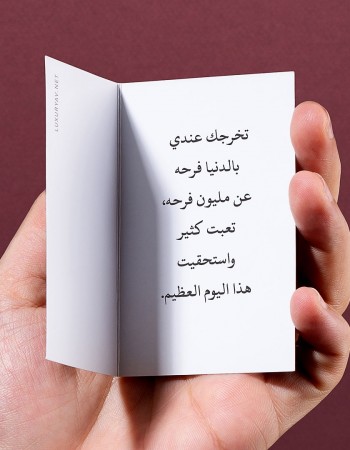 تخرجك عندي
بالدنيا فرحه
عن مليون فرحه،
تعبت كثير
واستحقيت
هذا اليوم العظيم.